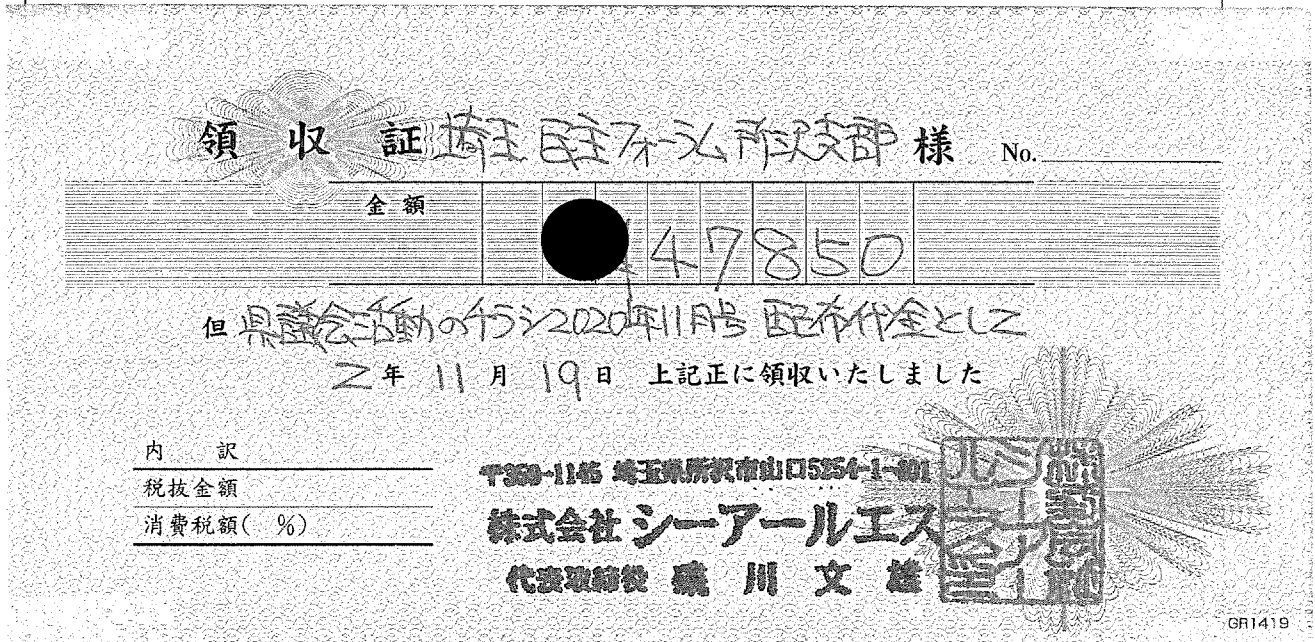 領収証 埼玉民主フォーラム所沢支部 様 No.
金額
¥47850
但 県議会活動のチラシ2020年11月号 配布代金として
2年 11月 19日 上記正に領収いたしました
内 訳
税抜金額
消費税額( %)
埼玉県所沢市山口5254-1-401
株式会社 シーアールエス
代表取締役 川 文 雄
GR1419